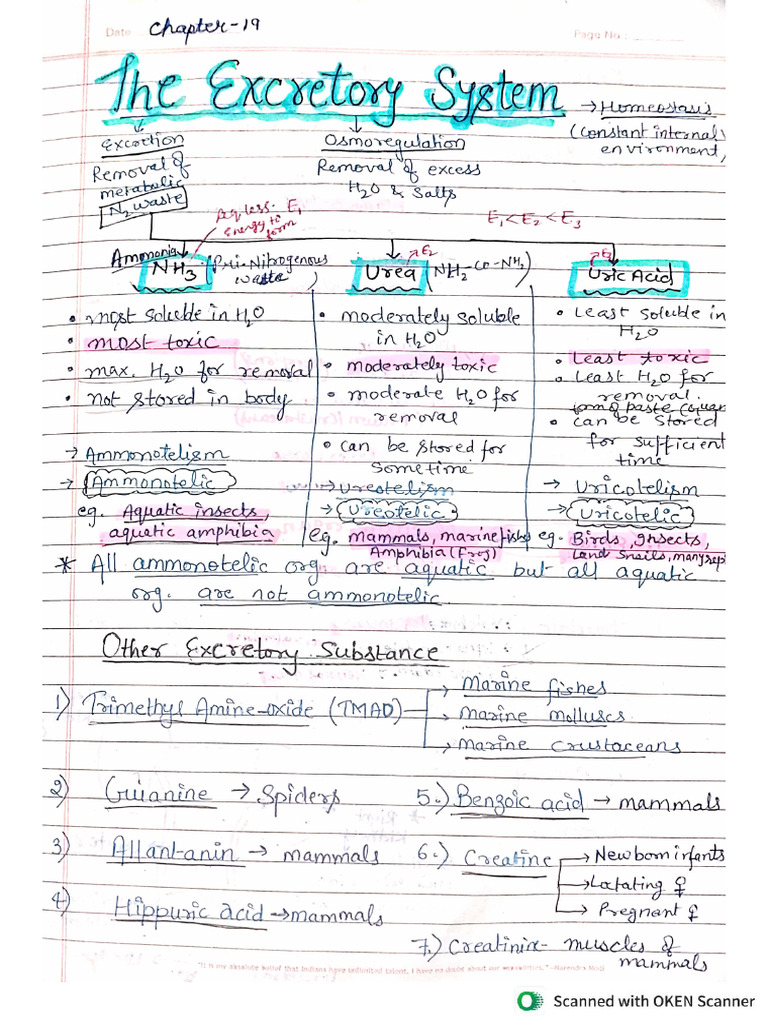 Date Chapter-19 Page No.:
The Excretory System → Homeostasis
(Constant internal environment,
Excretion
Removal of metabolic
N₂ waste
Osmoregulation
Removal of excess
H₂O & Salts
Req less. E₁
energy to form
E₁<E₂<E₃
Ammonia
NH₃ (Pri-Nitrogenous waste)
• most soluble in H₂O
• most toxic
• max. H₂O for removal
• not stored in body
→ Ammonotelism
→ Ammonotelic
eg. Aquatic insects,
aquatic amphibia
E₂
Urea (NH₂-CO-NH₂)
• moderately soluble
in H₂O
• moderately toxic
• moderate H₂O for
removal
• can be stored for
sometime
→ Ureotelism
→ Ureotelic
eg. mammals, marine fishes
Amphibia (frog)
Uric Acid
• Least soluble in
H₂O
• Least toxic
• Least H₂O for
removal.
form of paste
• can be stored
for sufficient
time
→ Uricotelism
→ Uricotelic
eg. Birds, Insects,
Land Snails, many rep
* All ammonotelic org. are aquatic but all aquatic
org. are not ammonotelic
Other Excretory Substance
1) Trimethyl Amine-oxide (TMAO)
→ Marine fishes
→ Marine molluscs
→ Marine crustaceans
2) Guianine → Spiders
3) Allantanin → mammals
4) Hippuric acid → mammals
5.) Benzoic acid → mammals
6.) Creatine → Newborn infants
→ Lactating ♀
→ Pregnant ♀
7.) Creatinix- muscles of
mammals
"It is my absolute belief that Indians have unlimited talent. I have no doubt about our capabilities." -Narendra Modi
Scanned with OKEN Scanner